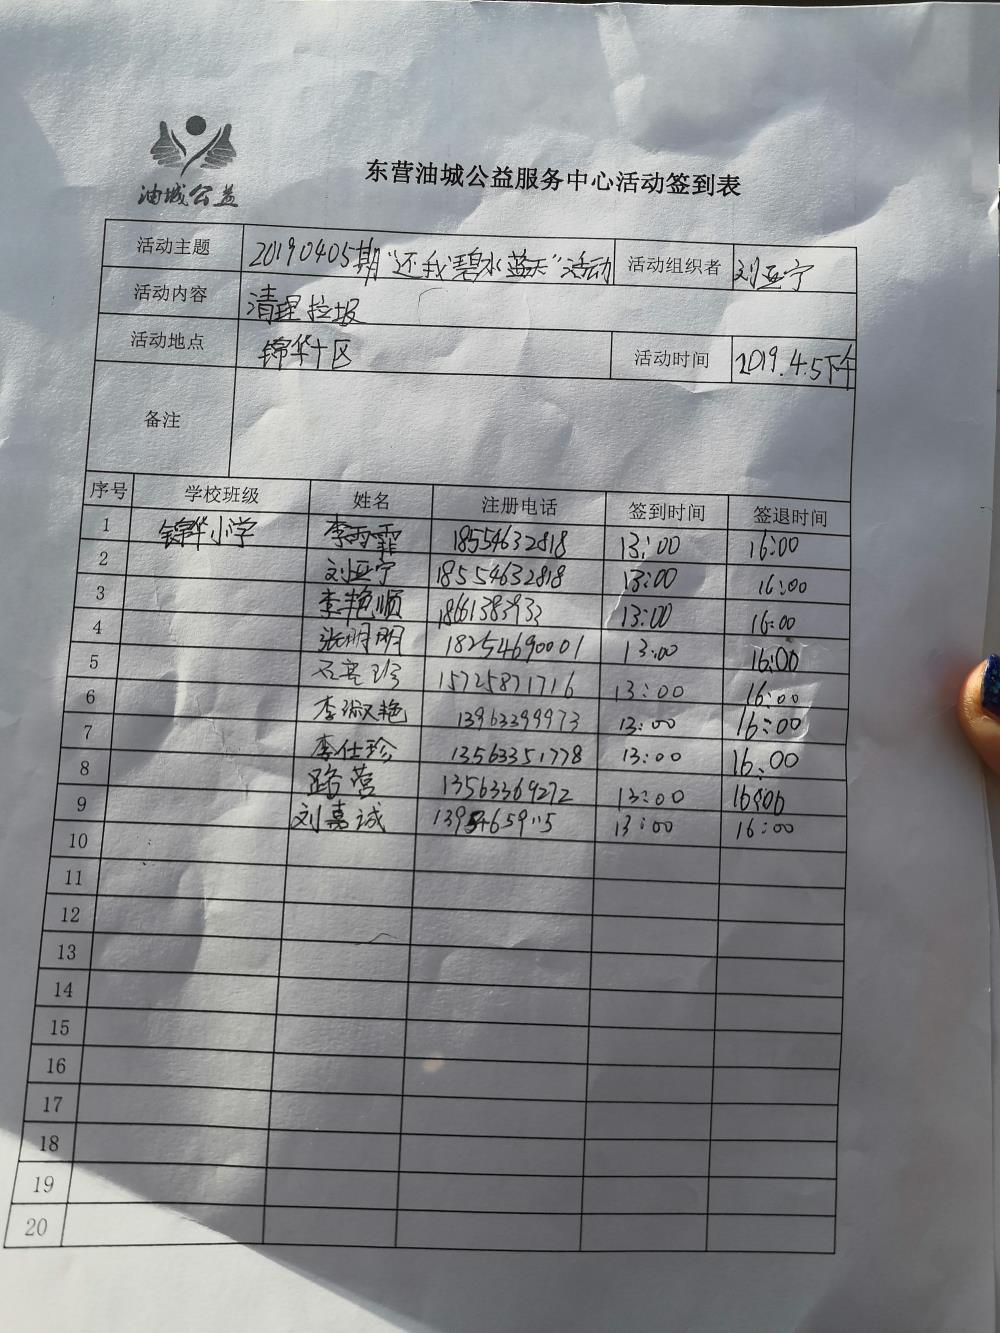 油城公益
东营油城公益服务中心活动签到表
活动主题 20190405期"还我碧水蓝天"活动 活动组织者 刘亚宁
活动内容 清理垃圾
活动地点 锦华十区 活动时间 2019.4.5下午
备注
序号 学校班级 姓名 注册电话 签到时间 签退时间
1 锦华小学 李雨霏 18554632818 13:00 16:00
2 刘亚宁 18554632818 13:00 16:00
3 李艳顺 18661383933 13:00 16:00
4 张明明 18254690001 13:00 16:00
5 15725871716 13:00 16:00
6 李淑艳 13963399973 13:00 16:00
7 李仕珍 13563351778 13:00 16:00
8 路营 13563369272 13:00 16:00
9 刘嘉诚 13:00 16:00
10
11
12
13
14
15
16
17
18
19
20